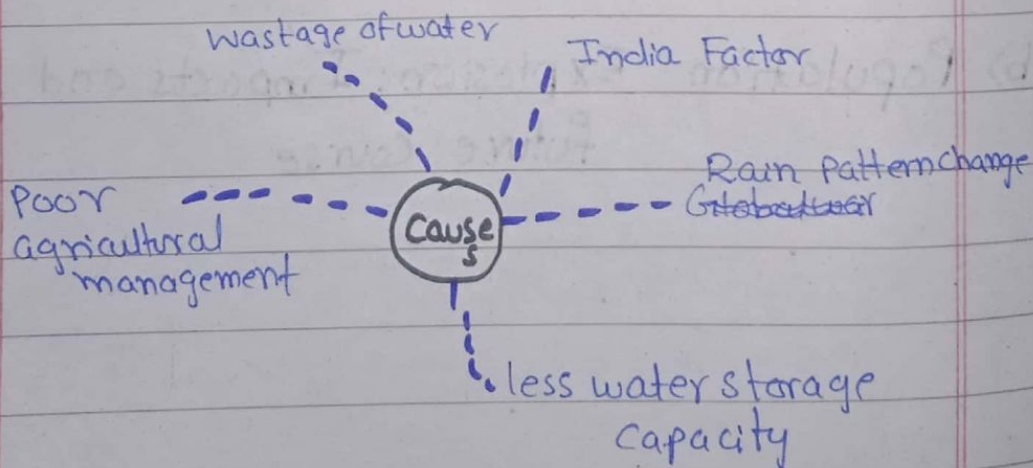 Wastage of water
India Factor
Rain Pattern change
Poor
agricultural
management
Cause
s
less water storage
capacity